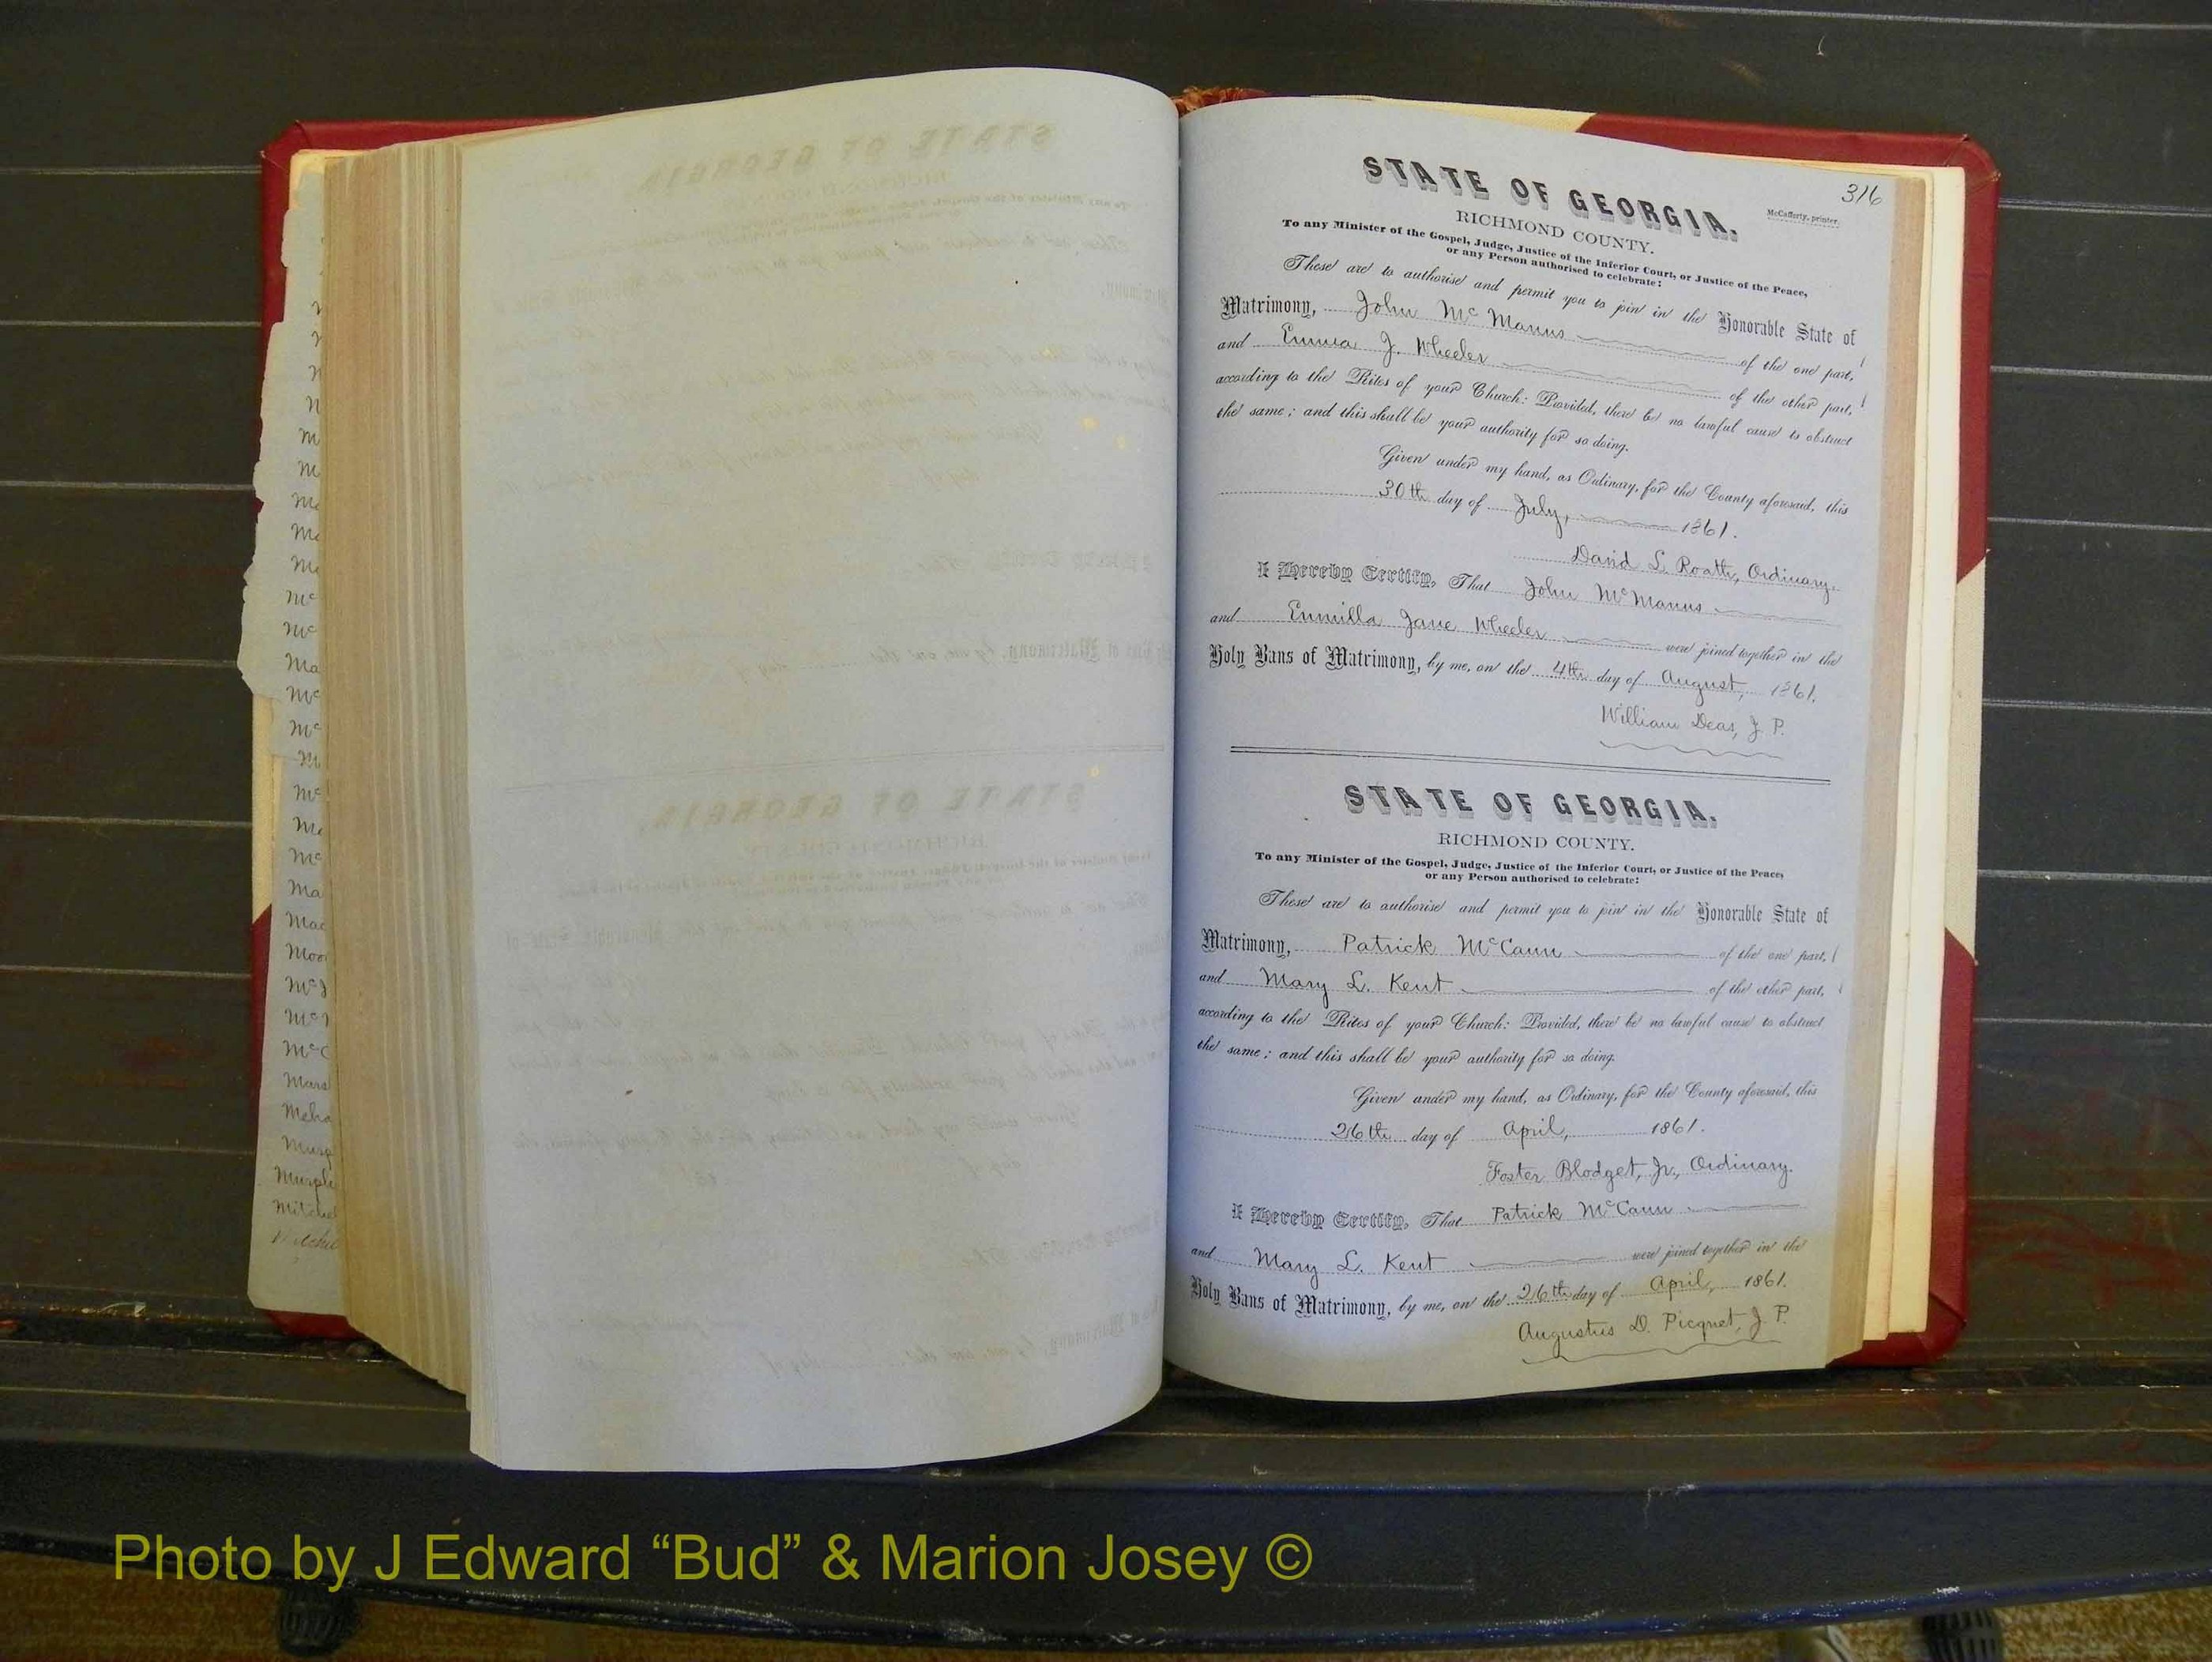 316
McCafferty, printer.
STATE OF GEORGIA.
RICHMOND COUNTY.
To any Minister of the Gospel, Judge, Justice of the Inferior Court, or Justice of the Peace,
or any Person authorised to celebrate:
These are to authorise and permit you to join in the Honorable State of
Matrimony, John McManus of the one part,
and Emma J. Wheeler of the other part,
according to the Rites of your Church: Provided, there be no lawful cause to obstruct
the same; and this shall be your authority for so doing.
Given under my hand, as Ordinary, for the County aforesaid, this
30th day of July, 1861.
David L. Roath, Ordinary.
I Hereby Certify, That John McManus
and Emmilla Jane Wheeler were joined together in the
Holy Bans of Matrimony, by me, on the 4th day of August, 1861.
William Deas, J. P.
STATE OF GEORGIA.
RICHMOND COUNTY.
To any Minister of the Gospel, Judge, Justice of the Inferior Court, or Justice of the Peace,
or any Person authorised to celebrate:
These are to authorise and permit you to join in the Honorable State of
Matrimony, Patrick McCann of the one part,
and Mary L. Kent of the other part,
according to the Rites of your Church: Provided, there be no lawful cause to obstruct
the same; and this shall be your authority for so doing.
Given under my hand, as Ordinary, for the County aforesaid, this
26th day of April, 1861.
Foster Blodget, Jr., Ordinary.
I Hereby Certify, That Patrick McCann
and Mary L. Kent were joined together in the
Holy Bans of Matrimony, by me, on the 26th day of April, 1861.
Augustus D. Picquet, J. P.
Photo by J Edward “Bud” & Marion Josey ©